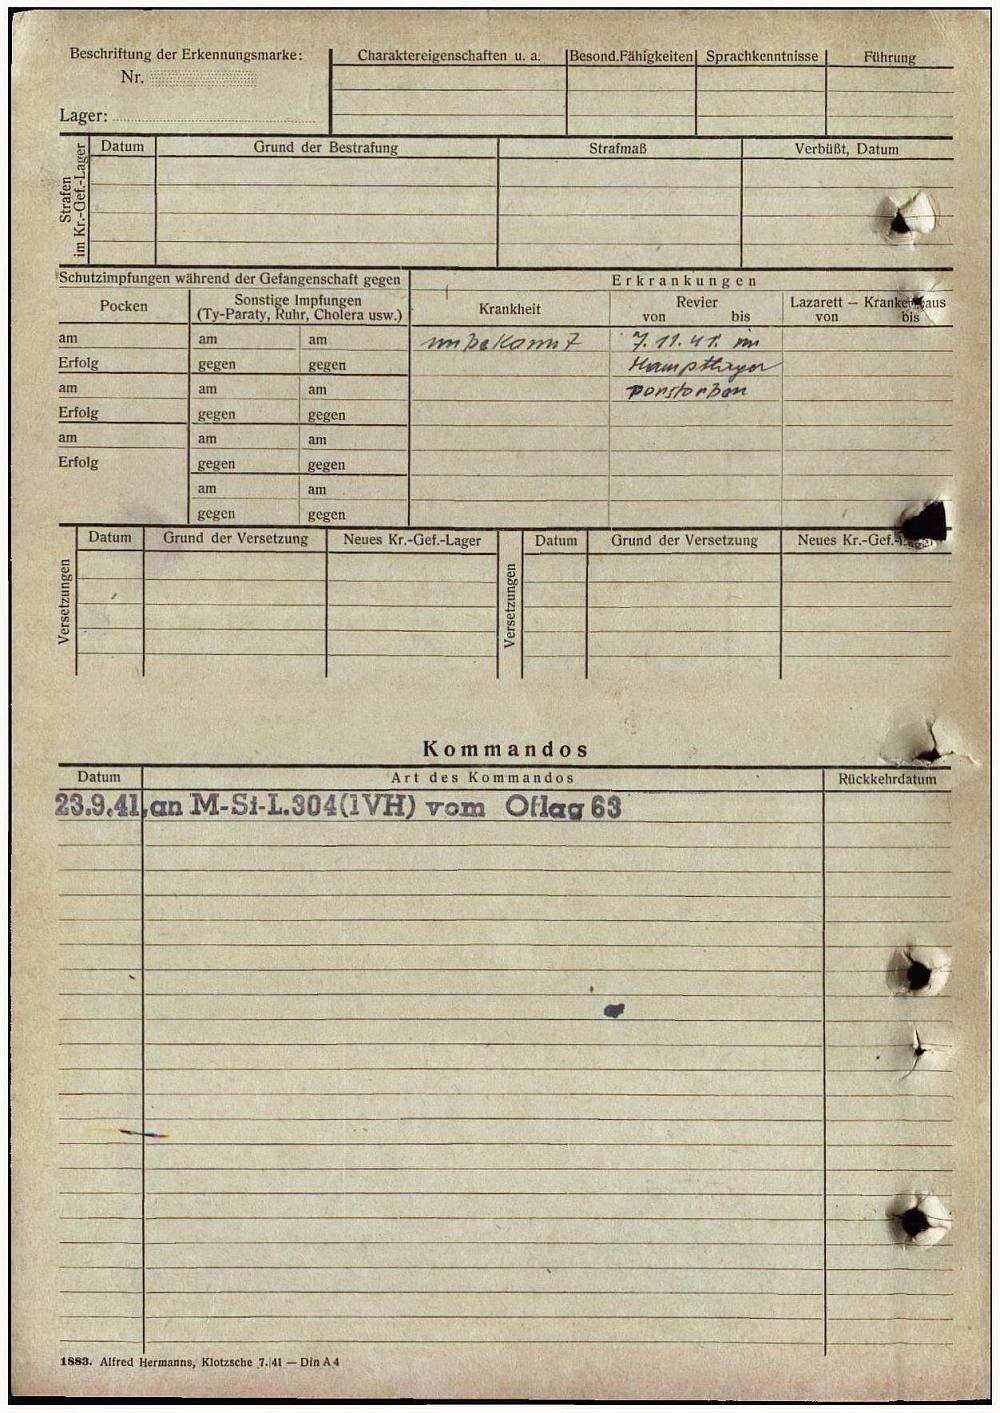 Beschriftung der Erkennungsmarke:
Nr.
Lager:
Charaktereigenschaften u. a.
Besond.Fähigkeiten
Sprachkenntnisse
Führung
Strafen
im Kr.-Gef.-Lager
Datum
Grund der Bestrafung
Strafmaß
Verbüßt, Datum
Schutzimpfungen während der Gefangenschaft gegen
Pocken
Sonstige Impfungen
(Ty-Paraty, Ruhr, Cholera usw.)
am
am
am
Erfolg
gegen
gegen
am
am
am
Erfolg
gegen
gegen
am
am
am
Erfolg
gegen
gegen
am
am
gegen
gegen
Erkrankungen
Krankheit
Revier
von bis
Lazarett – Krankenhaus
von bis
unbekannt
7. 11. 41. im
Hauptlager
verstorben
Versetzungen
Datum
Grund der Versetzung
Neues Kr.-Gef.-Lager
Versetzungen
Datum
Grund der Versetzung
Neues Kr.-Gef.-Lager
Kommandos
Datum
Art des Kommandos
Rückkehrdatum
23.9.41. an M-St-L.304(IVH) vom Oflag 63
1883. Alfred Hermanns, Klotzsche 7.|41 — Din A 4